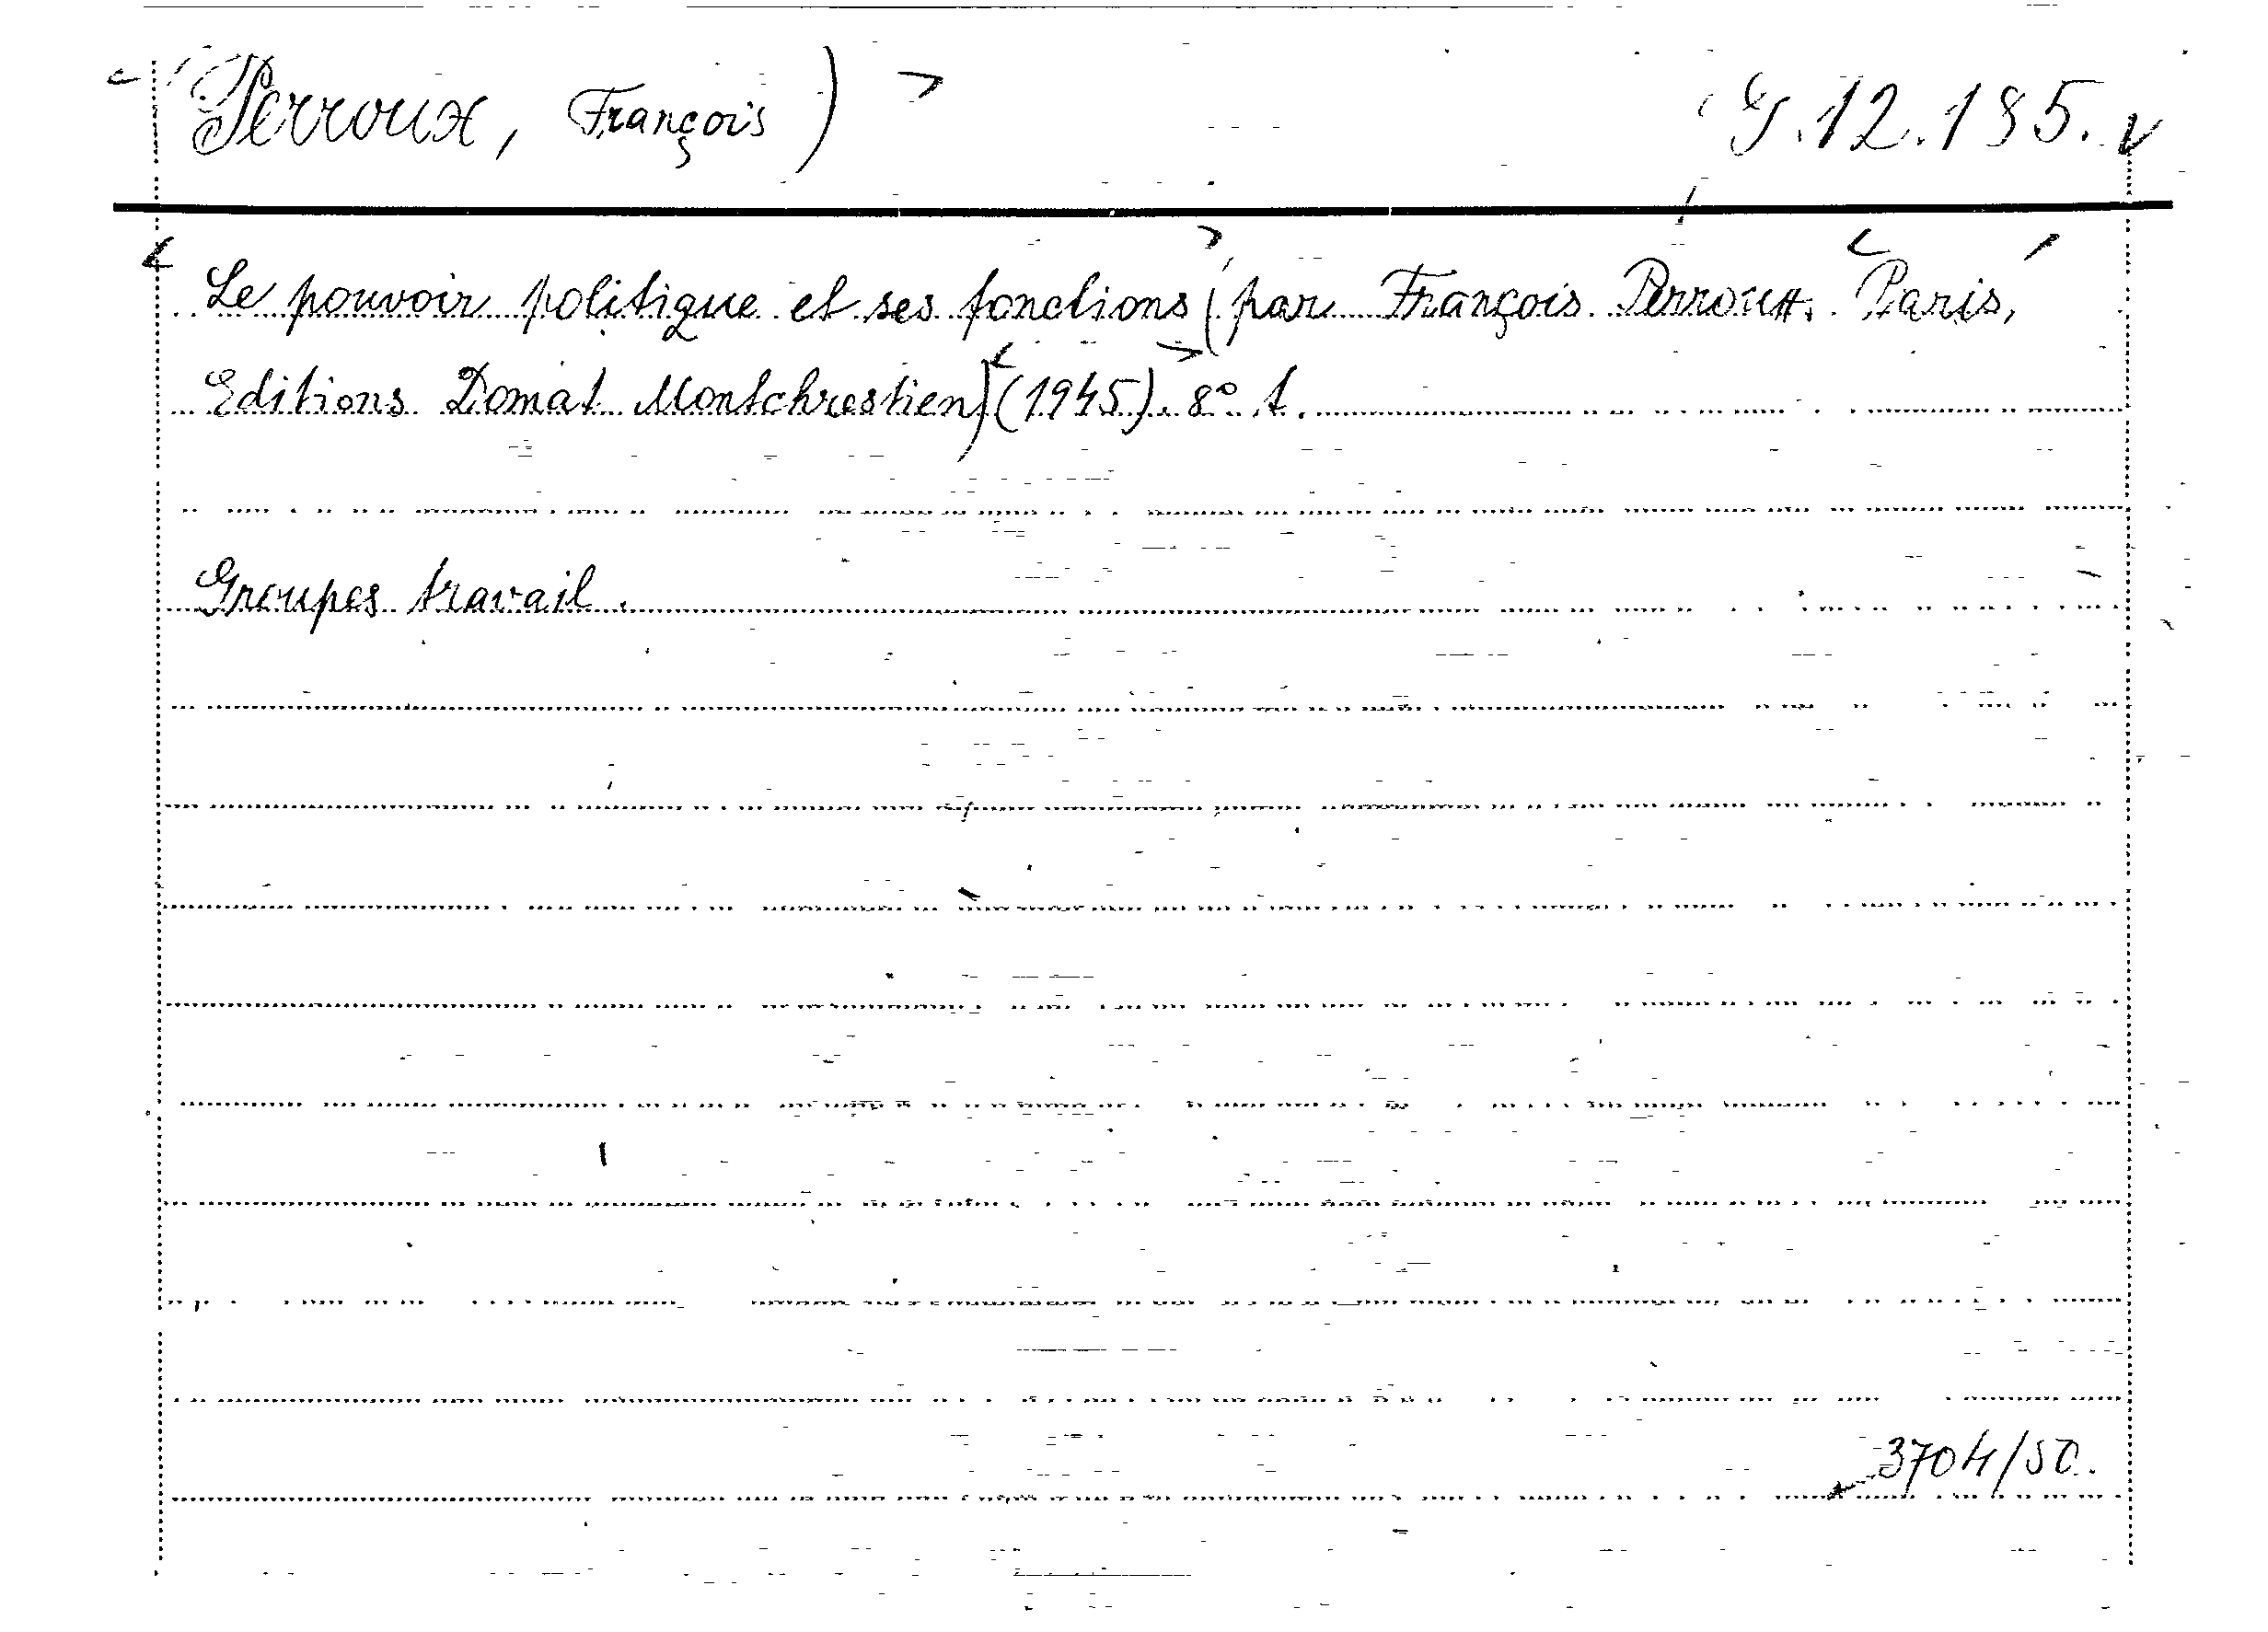 Perroux, François) 12.185.
Le pouvoir politique et ses fonctions (par François Perroux. Paris,
Editions Domat Montchrestien) (1945). 8° t.
Groupes travail.
3704/50.